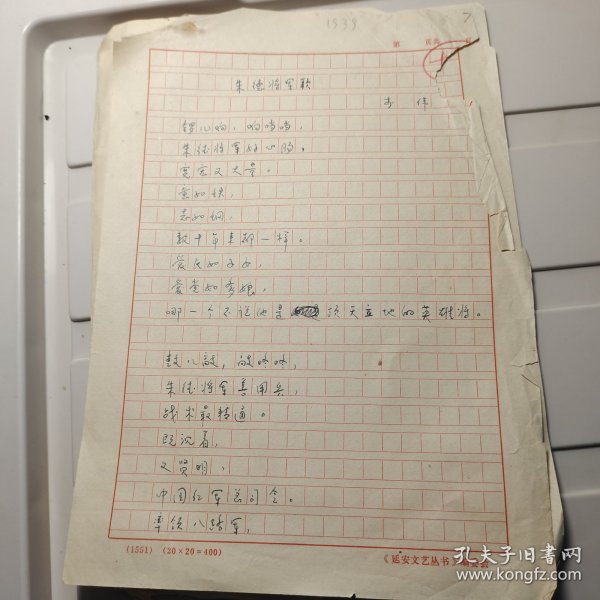 1939
7
第 页
朱德将军歌
李 伟
锣儿响，响当当，
朱德将军好心肠。
宽宏又大量。
意如铁，
志如钢，
数十年来都一样。
爱民如子女，
爱党如爹娘，
哪一个不说他是顶天立地的英雄将。
鼓儿敲，敲咚咚，
朱德将军善用兵，
战术最精通。
既沉着，
又贤明，
中国红军总司令。
率领八路军，
(1551) (20×20=400)
《延安文艺丛书》
孔夫子旧书网
www.kongfz.com